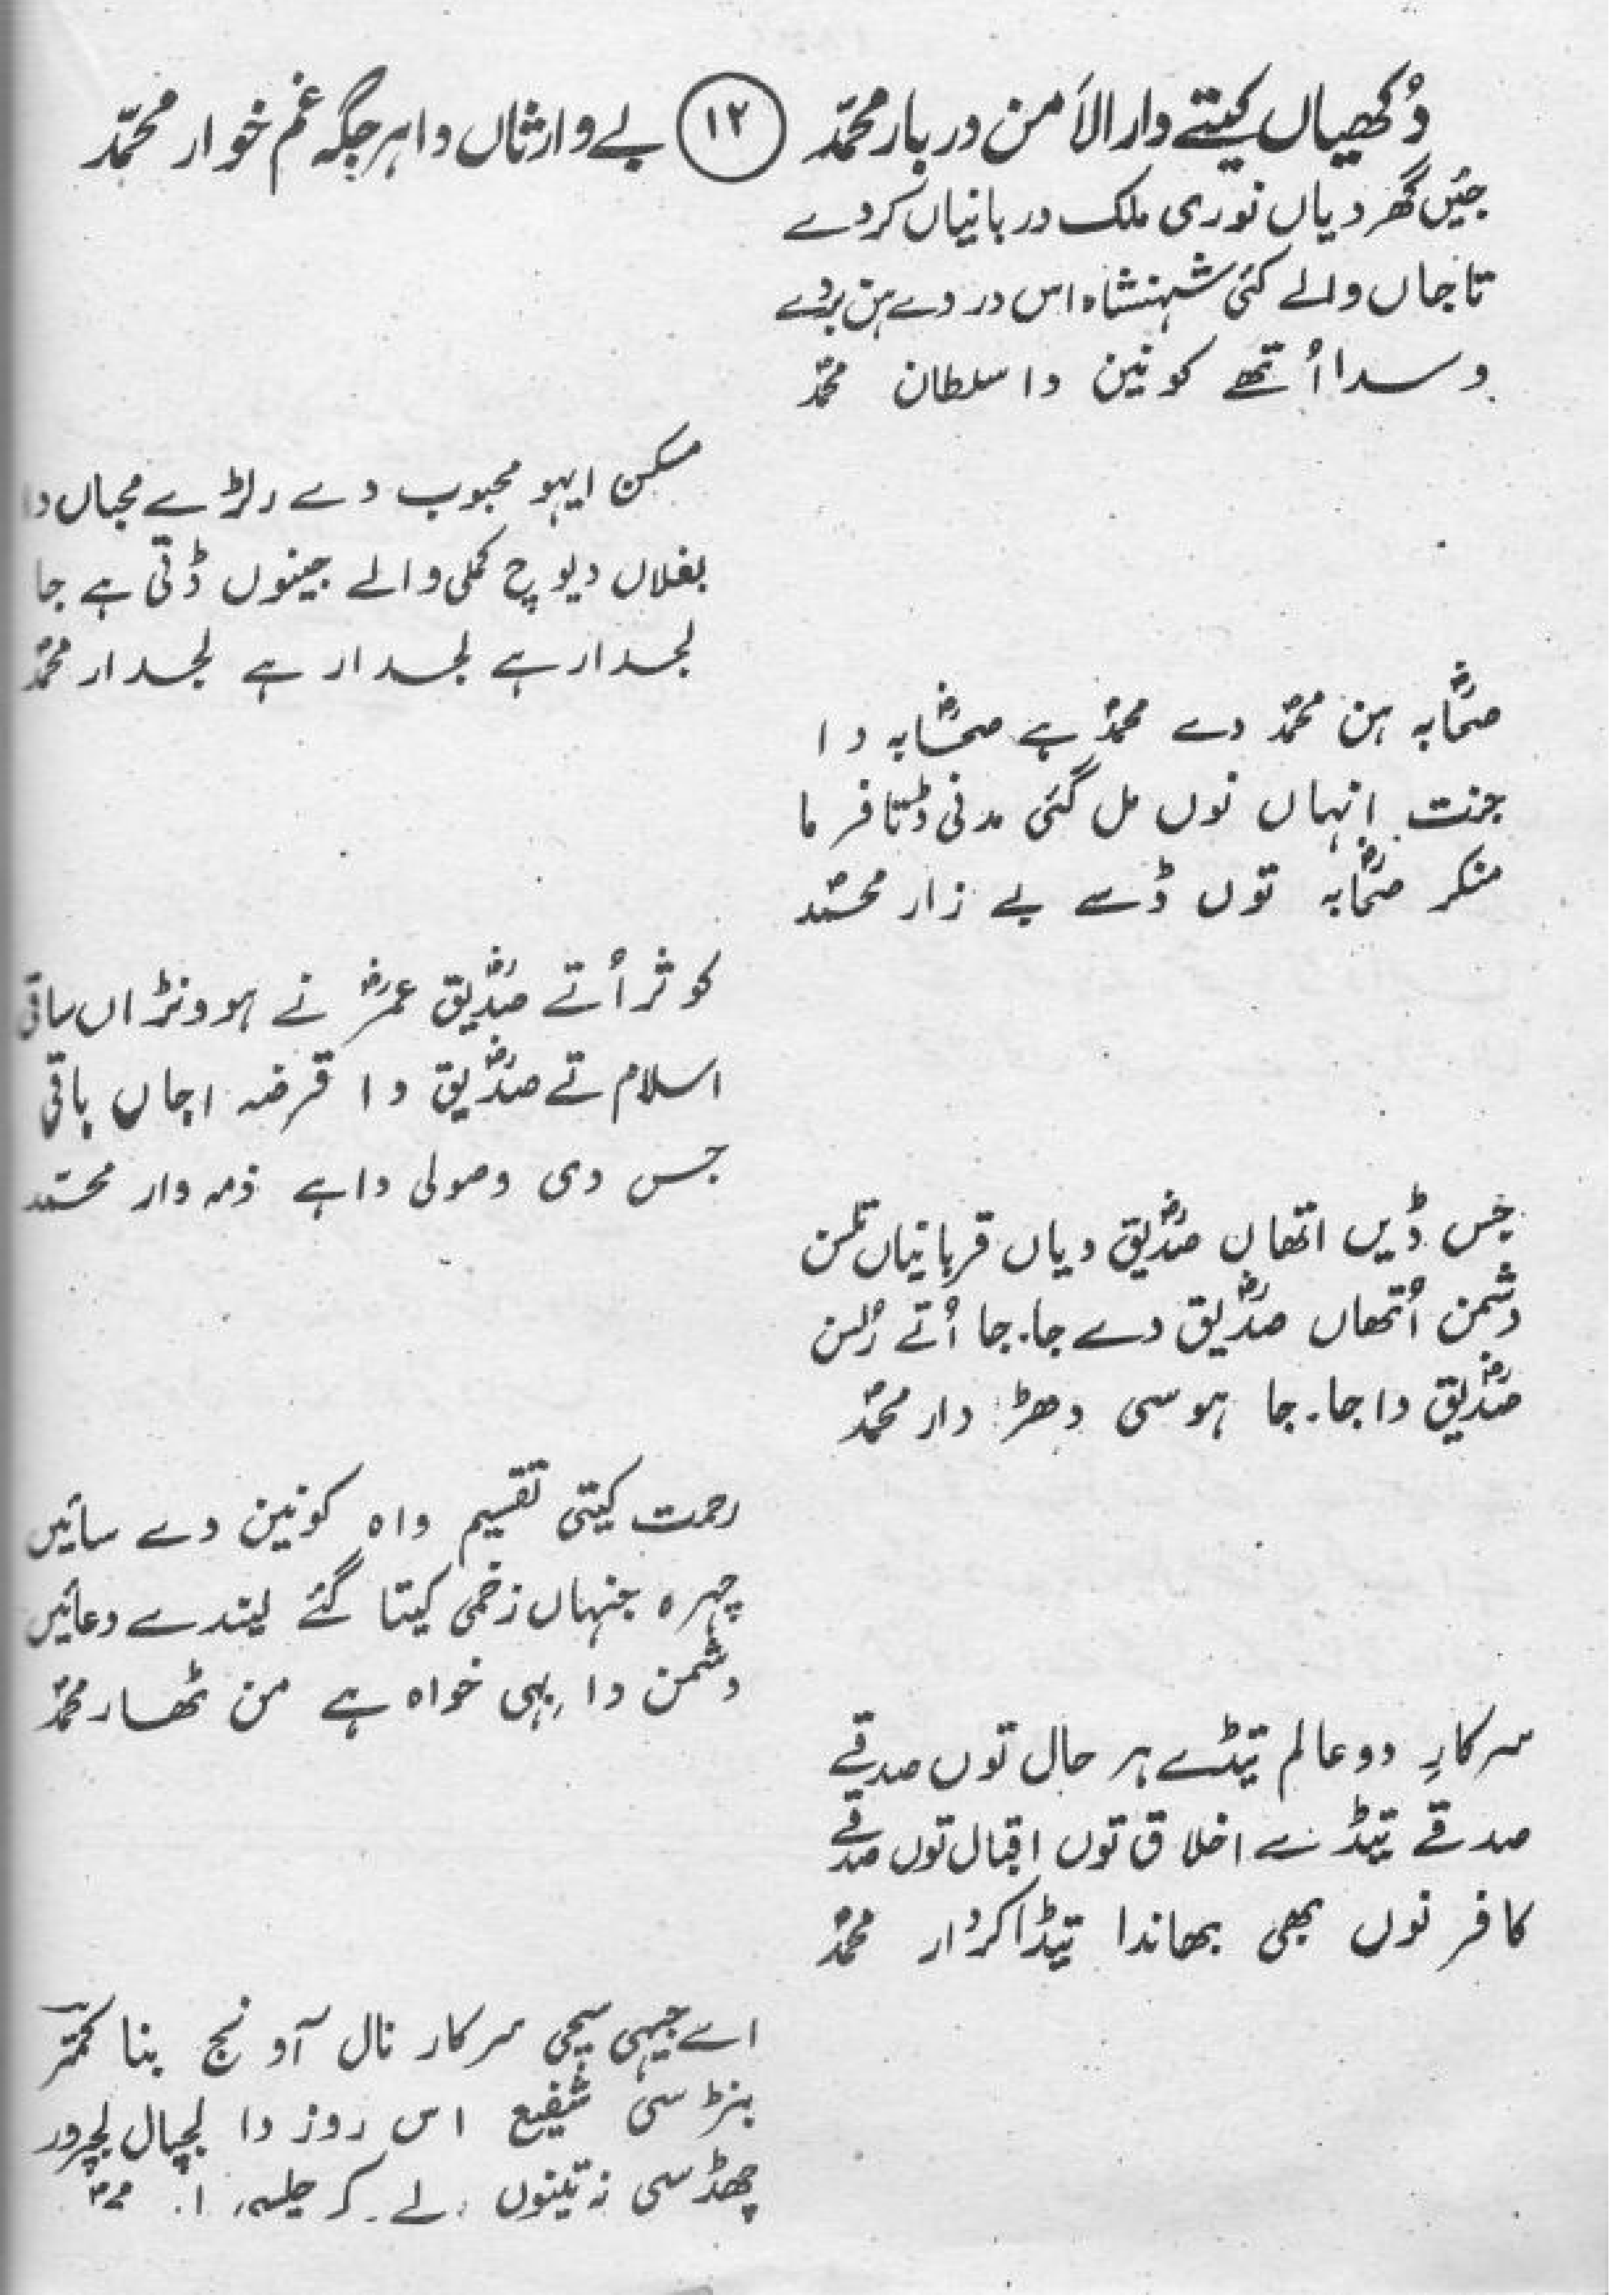 دُکھیاں کیتے دارالاَمن دربار محمّد ۱۲ بے وارثاں دا ہر جگہ غم خوار محمّد
جیں گھر دیاں نوری ملک دربانیاں کردے
تاجاں والے کئی شہنشاہ اس در دے ہن بردے
وسدا اُتھے کونین دا سلطان محمدؐ
مسکن ایہو محبوب دے رلڑے محباں دا
بغلاں دیوچ کملی والے جینوں ڈتی ہے جا
لجدار ہے لجدار ہے لجدار محمدؐ
صحابہؓ ہن محمدؐ دے محمدؐ ہے صحابہؓ دا
جنت انہاں نوں مل گئی مدنی ڈتا فرما
منکر صحابہؓ توں ڈسے بے زار محمدؐ
کوثر اُتے صدیقؓ عمرؓ نے ہوونڑاں ساقی
اسلام تے صدیقؓ دا قرضہ اجاں باقی
جس دی وصولی دا ہے ذمہ وار محمّد
جس ڈیں اتھاں صدیقؓ دیاں قربانیاں تلسن
دشمن اُتھاں صدیقؓ دے جا۔جا اُتے رُلسن
صدیقؓ دا جا۔جا ہوسی دھڑ دار محمدؐ
رحمت کیتی تقسیم واہ کونین دے سائیں
چہرہ جنہاں زخمی کیتا گئے لیندے دعائیں
دشمن دا بہی خواہ ہے من ٹھار محمدؐ
سرکارِ دوعالم تیڈے ہر حال توں صدقے
صدقے تیڈے اخلاق توں اقبال توں صدقے
کافر نوں بھی بھاندا تیڈا کردار محمدؐ
اے جیہی سچی سرکار نال آونج بنا کمتر
بنڑسی شفیع اس روز دا لجپال لجپرور
چھڈسی نہ تینوں لے کر